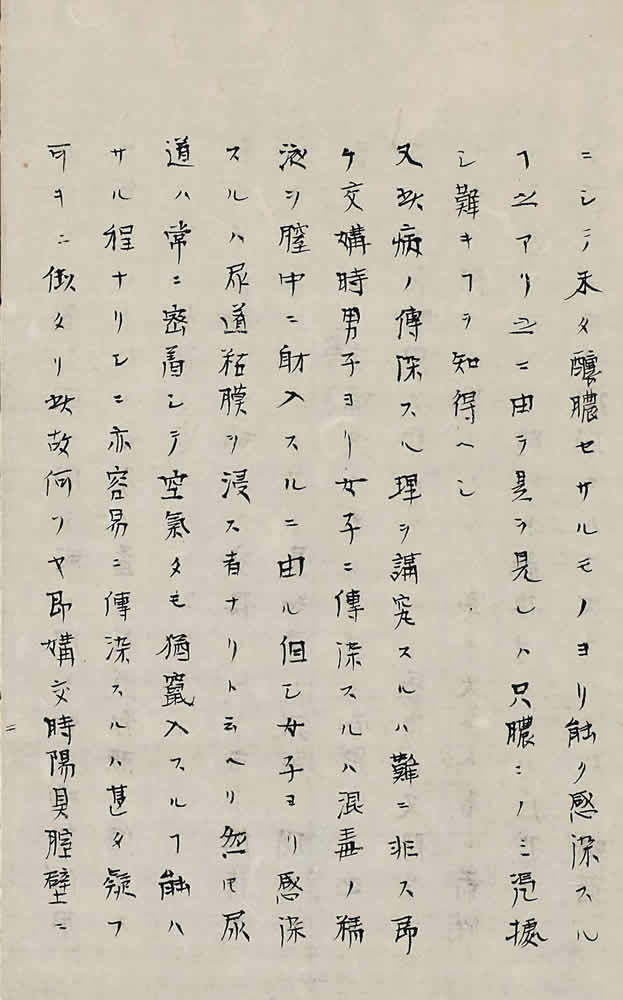 ニシテ未タ釀膿セサルモノヨリ能ク感染スル
ヿ之アリ之ニ由テ是ヲ見レハ只膿ニノミ憑據
シ難キヿヲ知得ヘシ
又此病ノ傳染スル理ヲ講究スルハ難ニ非ス即
ケ交媾時男子ヨリ女子ニ傳染スルハ混毒ノ精
液ヲ膣中ニ射入スルニ由ル但シ女子ヨリ感染
スルハ尿道粘膜ヲ浸ス者ナリト云ヘリ然ㇾ尿
道ハ常ニ密着シテ空氣タモ猶竄入スルヿ能ハ
サル程ナリシニ亦容易ニ傳染スルハ甚タ疑フ
可キニ似タリ此故何ソヤ即媾交時陽具膣壁ニ